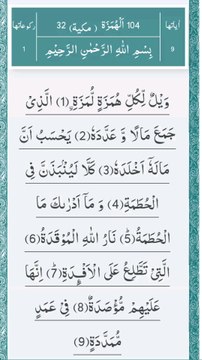 آیاتها 104 اَلْهُمَزَة (مكية) 32 ركوعاتها
9 بِسْمِ اللّٰهِ الرَّحْمٰنِ الرَّحِيْمِ 1
وَيْلٌ لِّكُلِّ هُمَزَةٍ لُّمَزَةِ ۨ(1) الَّذِيْ
جَمَعَ مَالًا وَّ عَدَّدَهٗ(2) يَحْسَبُ اَنَّ
مَالَهٗۤ اَخْلَدَهٗ(3) كَلَّا لَيُنْۢبَذَنَّ فِي
الْحُطَمَةِ(4) وَ مَاۤ اَدْرٰىكَ مَا
الْحُطَمَةُ(5) نَارُ اللّٰهِ الْمُوْقَدَةُ(6)
الَّتِيْ تَطَّلِعُ عَلَى الْاَفْـِٕدَةِ(7) اِنَّهَا
عَلَيْهِمْ مُّؤْصَدَةٌ(8) فِيْ عَمَدٍ
مُّمَدَّدَةٍ(9)